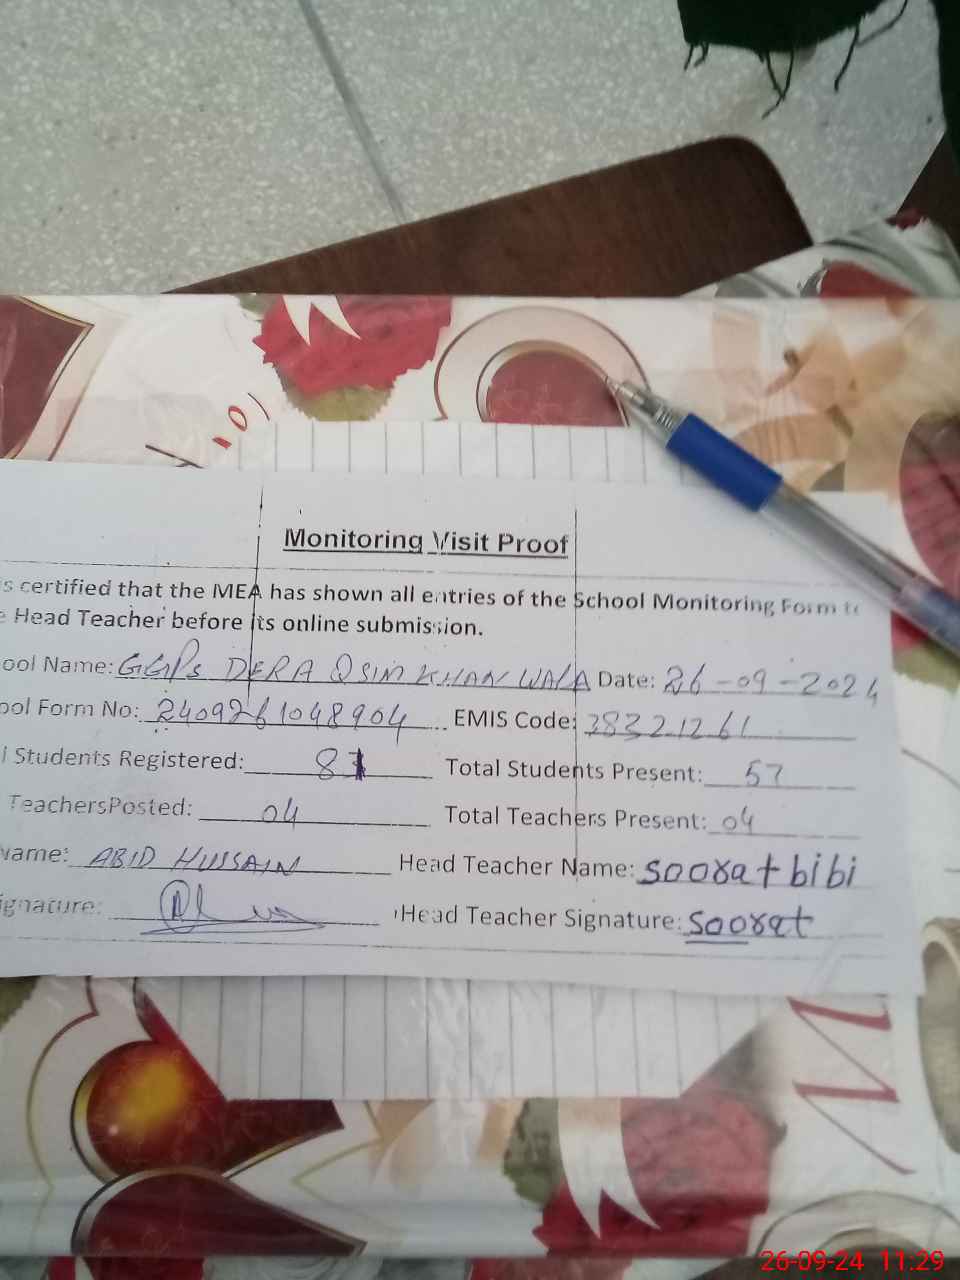 Monitoring Visit Proof
s certified that the MEA has shown all entries of the School Monitoring Form t
e Head Teacher before its online submission.
ool Name: GGPS DERA QSIM KHAN WALA Date: 26-09-2024
ool Form No: 2409261048904 EMIS Code: 38321261
l Students Registered: 81 Total Students Present: 57
TeachersPosted: 04 Total Teachers Present: 04
Name: ABID HUSSAIN Head Teacher Name: soorat bibi
ignature: Head Teacher Signature: Soorat
26-09-24 11:29